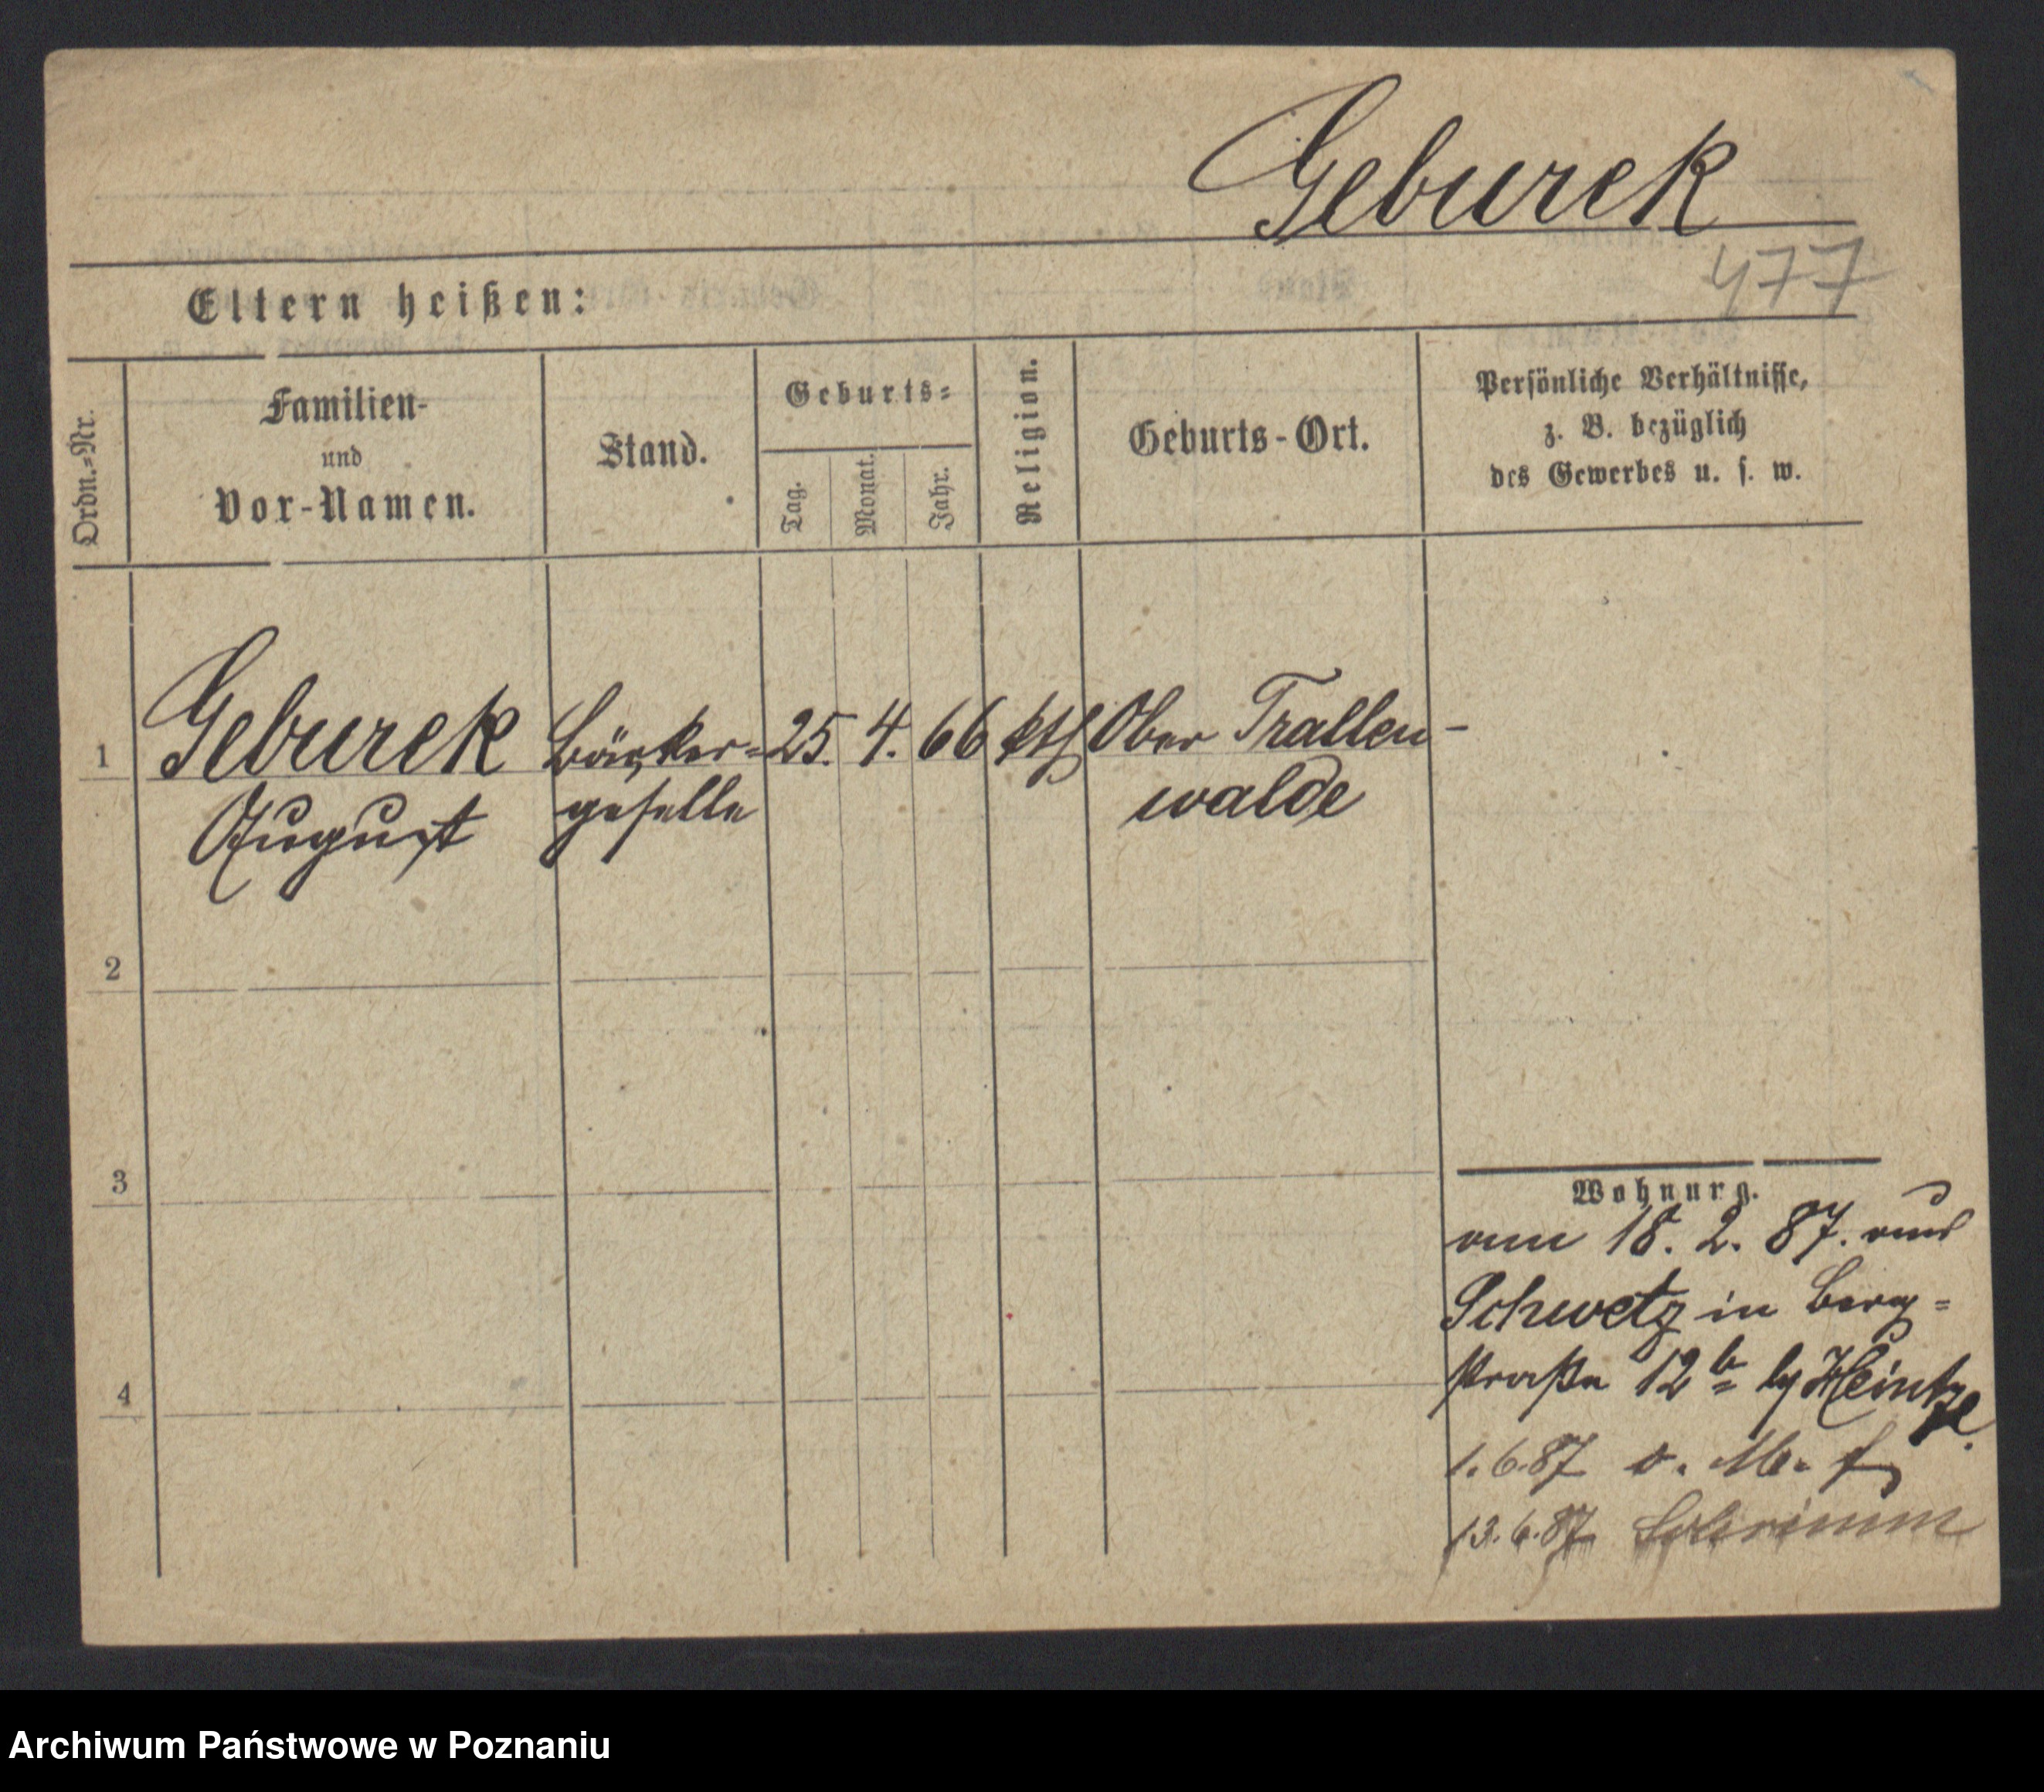 Geburek
477
Eltern heißen:
Ordn.=Nr.
Familien-
und
Vor-Namen.
Stand.
Geburts=
Tag.
Monat.
Jahr.
Religion.
Geburts-Ort.
Persönliche Verhältnisse,
z. B. bezüglich
des Gewerbes u. s. w.
1 Geburek Bäcker= 25. 4. 66 kth Ober Trallen-
August geselle walde
2
3
4
Wohnung.
am 18. 2. 87. aus
Schwetz in Berg=
straße 12 b by Heintze.
1.6.87 v. M.
13.6.87 Schrimm
Archiwum Państwowe w Poznaniu